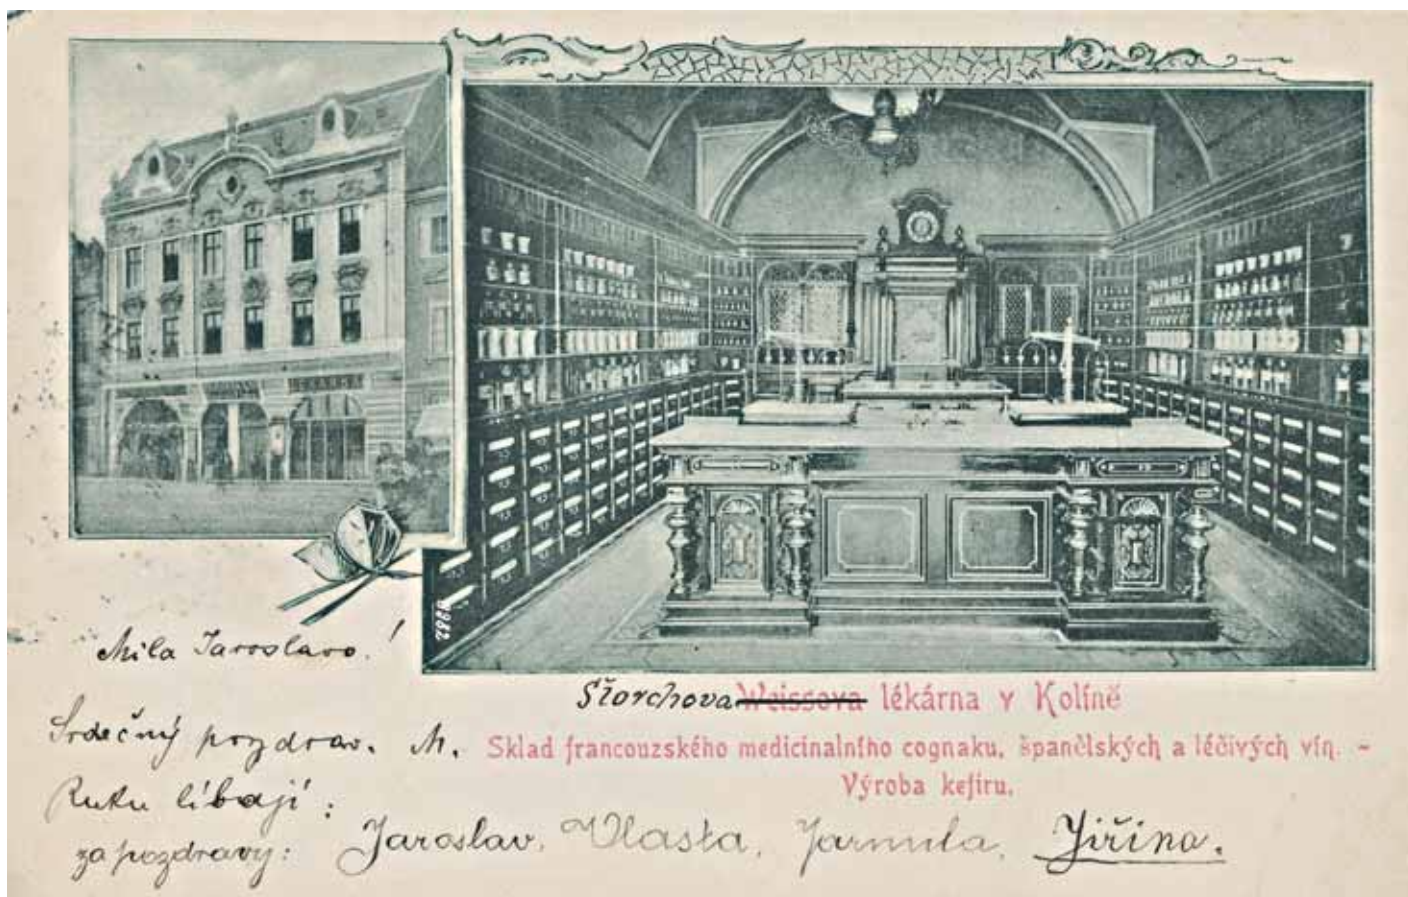 LÉKÁRNA
8982
Milá Jaroslavo!
Štorchova Weissova lékárna v Kolíně
Srdečný pozdrav. M.
Sklad francouzského medicinalního cognaku, španělských a léčivých vín. -
Výroba kefiru.
Ruku líbají:
za pozdravy: Jaroslav, Vlasta, Jarmila, Jiřina.